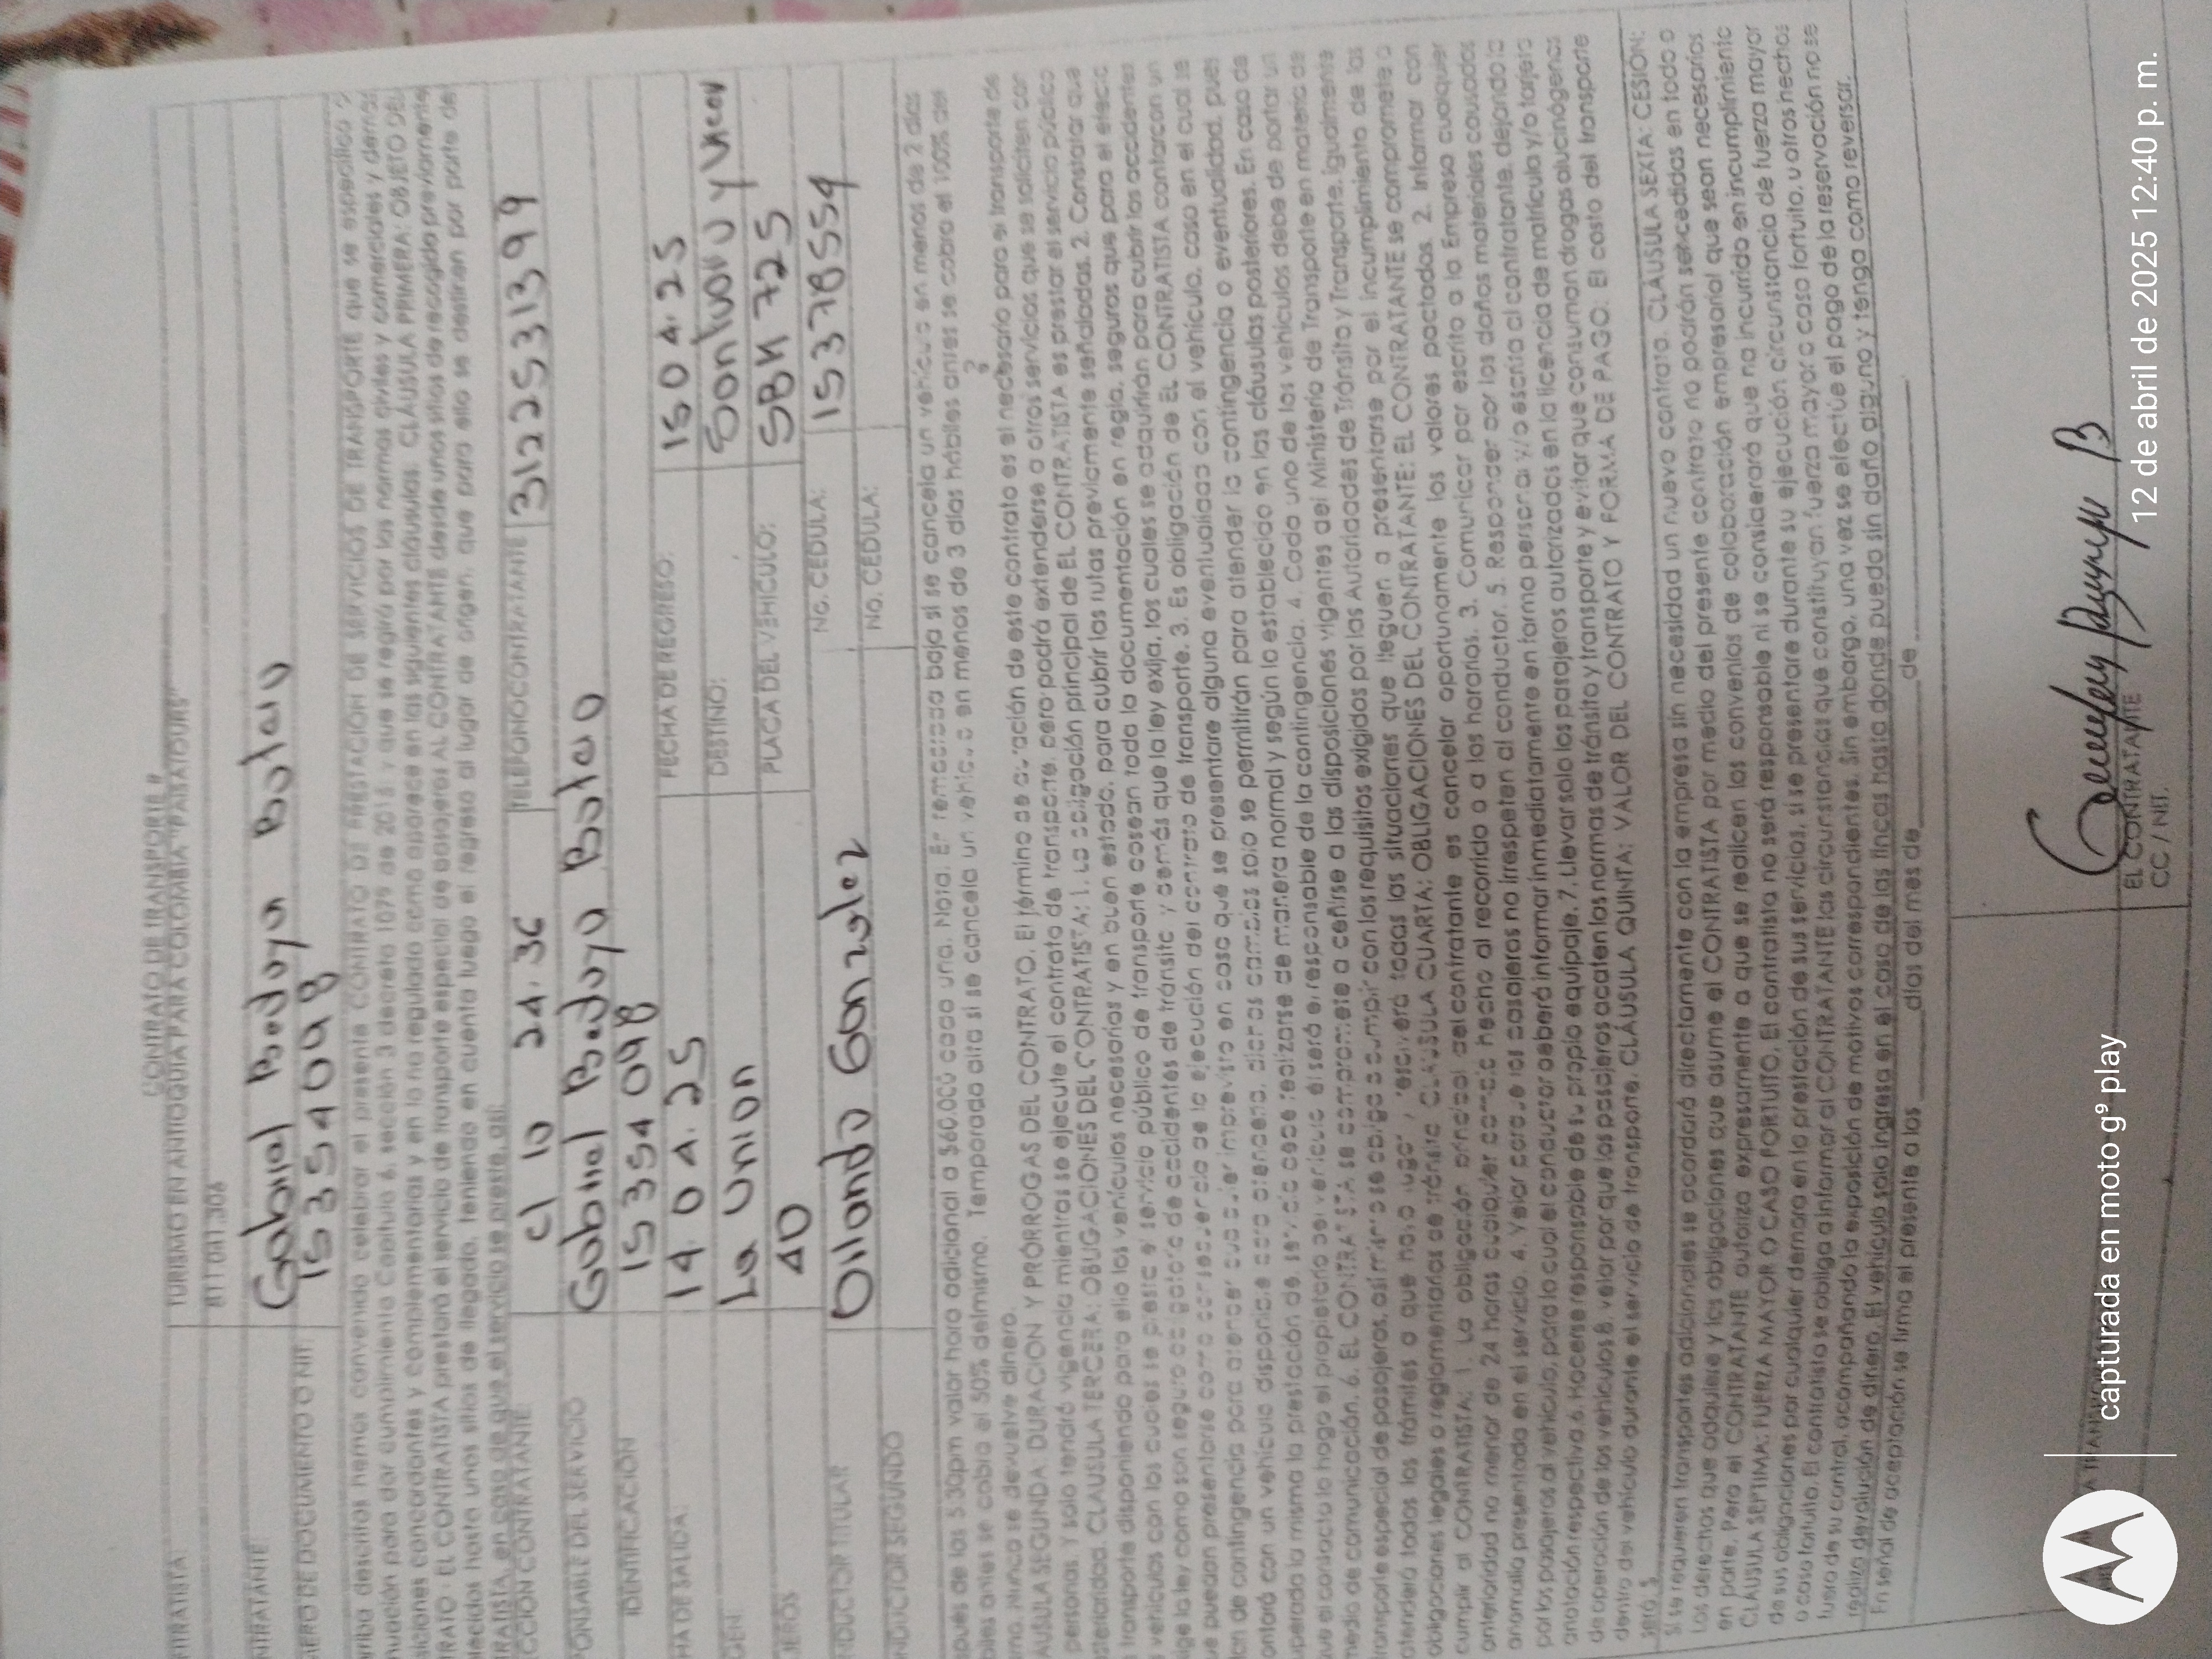 CONTRATO DE TRANSPORTE P
NTRATISTA: TURISMO EN ANTIOQUIA PARA COLOMBIA "PAISATOURS"
811.041.306
NTRATANTE Gabriel Bedoya Botero
MERO DE DOCUMENTO O NIT: 15354098
rriba descritos hemos convenido celebrar el presente CONTRATO DE PRESTACIÓN DE SERVICIOS DE TRANSPORTE que se especifica a
nuación para dar cumplimiento Capitulo 6, sección 3 decreto 1079 de 2015 y que se regirá por las normas civiles y comerciales y demás
siciones concordantes y complementarias y en lo no regulado como aparece en las siguientes cláusulas. CLÁUSULA PRIMERA: OBJETO DEL
RATO: EL CONTRATISTA prestará el servicio de transporte especial de pasajeros AL CONTRATANTE desde unos sitios de recogida previamente
lecidos hasta unos sitios de llegada, teniendo en cuenta luego el regreso al lugar de origen, que para ello se destinen por parte del
RATISTA, en caso de que el servicio se preste, así:
CCIÓN CONTRATANTE cl 10 24.36 TELEFONO CONTRATANTE 3122531399
PONSABLE DEL SERVICIO Gabriel Bedoya Botero
IDENTIFICACION 15354098
HA DE SALIDA: 14 04.25 FECHA DE REGRESO: 15 04.25
GEN: La Union DESTINO:
JEROS 40 PLACA DEL VEHICULO: 725
NDUCTOR TITULAR Orlando Gonzalez No. CEDULA: 15378554
NDUCTOR SEGUNDO No. CEDULA:
pués de las 5:30pm valor hora adicional a $60.000 cada una. Nota: En temporada baja si se cancela un vehículo en menos de 2 días
biles antes se cobra el 50% del mismo. Temporada alta si se cancela un vehículo en menos de 3 días hábiles antes se cobra el 100% del
mo. Nunca se devuelve dinero.
AUSULA SEGUNDA: DURACION Y PRÓRROGAS DEL CONTRATO. El término de duración de este contrato es el necesario para el transporte de
personas. Y solo tendrá vigencia mientras se ejecute el contrato de transporte, pero podrá extenderse a otros servicios que se soliciten con
sterioridad. CLAUSULA TERCERA: OBLIGACIONES DEL CONTRATISTA: 1. La obligación principal de EL CONTRATISTA es prestar el servicio público
transporte disponiendo para ello los vehículos necesarios y en buen estado, para cubrir las rutas previamente señaladas. 2. Constatar que
vehículos con los cuales se preste el servicio público de transporte posean toda la documentación en regla, seguros que para el efecto
ige la ley, como son seguro obligatorio de accidentes de tránsito y demás que la ley exija, los cuales se adquirirán para cubrir los accidentes
ue puedan presentarse como consecuencia de la ejecución del contrato de transporte. 3. Es obligación de EL CONTRATISTA contar con un
lan de contingencia para atender cualquier imprevisto en caso que se presentare alguna eventualidad con el vehículo, caso en el cual se
ontará con un vehículo disponible para atenderla, dichos cambios solo se permitirán para atender la contingencia o eventualidad, pues
uperada la misma la prestación de servicio debe realizarse de manera normal y según lo establecido en las cláusulas posteriores. En caso de
ue el contacto lo haga el propietario del vehículo él será el responsable de la contingencia. 4. Cada uno de los vehículos debe de portar un
medio de comunicación. 6. EL CONTRATISTA se compromete a ceñirse a las disposiciones vigentes del Ministerio de Transporte en materia de
transporte especial de pasajeros, así mismo se obliga a cumplir con los requisitos exigidos por las Autoridades de Tránsito y Transporte, igualmente
atenderá todos los trámites a que haya lugar y resolverá todas las situaciones que lleguen a presentarse por el incumplimiento de las
obligaciones legales o reglamentarias de tránsito. CLAUSULA CUARTA: OBLIGACIONES DEL CONTRATANTE: EL CONTRATANTE se compromete a
cumplir al CONTRATISTA: 1. La obligación principal del contratante es cancelar oportunamente los valores pactados. 2. Informar con
anterioridad no menor de 24 horas cualquier cambio hecho al recorrido o a los horarios. 3. Comunicar por escrito a la Empresa cualquier
anomalía presentada en el servicio. 4. Velar porque los pasajeros no irrespeten al conductor. 5. Responder por los daños materiales causados
por los pasajeros al vehículo, para lo cual el conductor deberá informar inmediatamente en forma personal y/o escrita al contratante, dejando la
anotación respectiva. 6. Hacerse responsable de su propio equipaje. 7. Llevar solo los pasajeros autorizados en la licencia de matrícula y/o tarjeta
de operación de los vehículos 8. velar por que los pasajeros acaten las normas de tránsito y transporte y evitar que consuman drogas alucinógenas
dentro del vehículo durante el servicio de transporte. CLÁUSULA QUINTA: VALOR DEL CONTRATO Y FORMA DE PAGO: El costo del transporte
será $
Si se requieren transportes adicionales se acordará directamente con la empresa sin necesidad un nuevo contrato. CLÁUSULA SEXTA: CESIÓN:
Los derechos que adquiere y las obligaciones que asume el CONTRATISTA por medio del presente contrato no podrán ser cedidas en todo o
en parte. Pero el CONTRATANTE autoriza expresamente a que se realicen los convenios de colaboración empresarial que sean necesarios
CLÁUSULA SEPTIMA: FUERZA MAYOR O CASO FORTUITO. El contratista no será responsable ni se considerará que ha incurrido en incumplimiento
de sus obligaciones por cualquier demora en la prestación de sus servicios, si se presentare durante su ejecución circunstancia de fuerza mayor
o caso fortuito. El contratista se obliga a informar al CONTRATANTE las circunstancias que constituyan fuerza mayor o caso fortuito, u otros hechos
fuera de su control, acompañando la exposición de motivos correspondientes. Sin embargo, una vez se efectúe el pago de la reservación no se
realiza devolución de dinero. El vehículo solo ingresa en el caso de las fincas hasta donde pueda sin daño alguno y tenga como reversar.
En señal de aceptación se firma el presente a los ______ días del mes de ______ de ______
EL CONTRATANTE
CC / NIT.
capturada en moto g⁹ play
12 de abril de 2025 12:40 p. m.